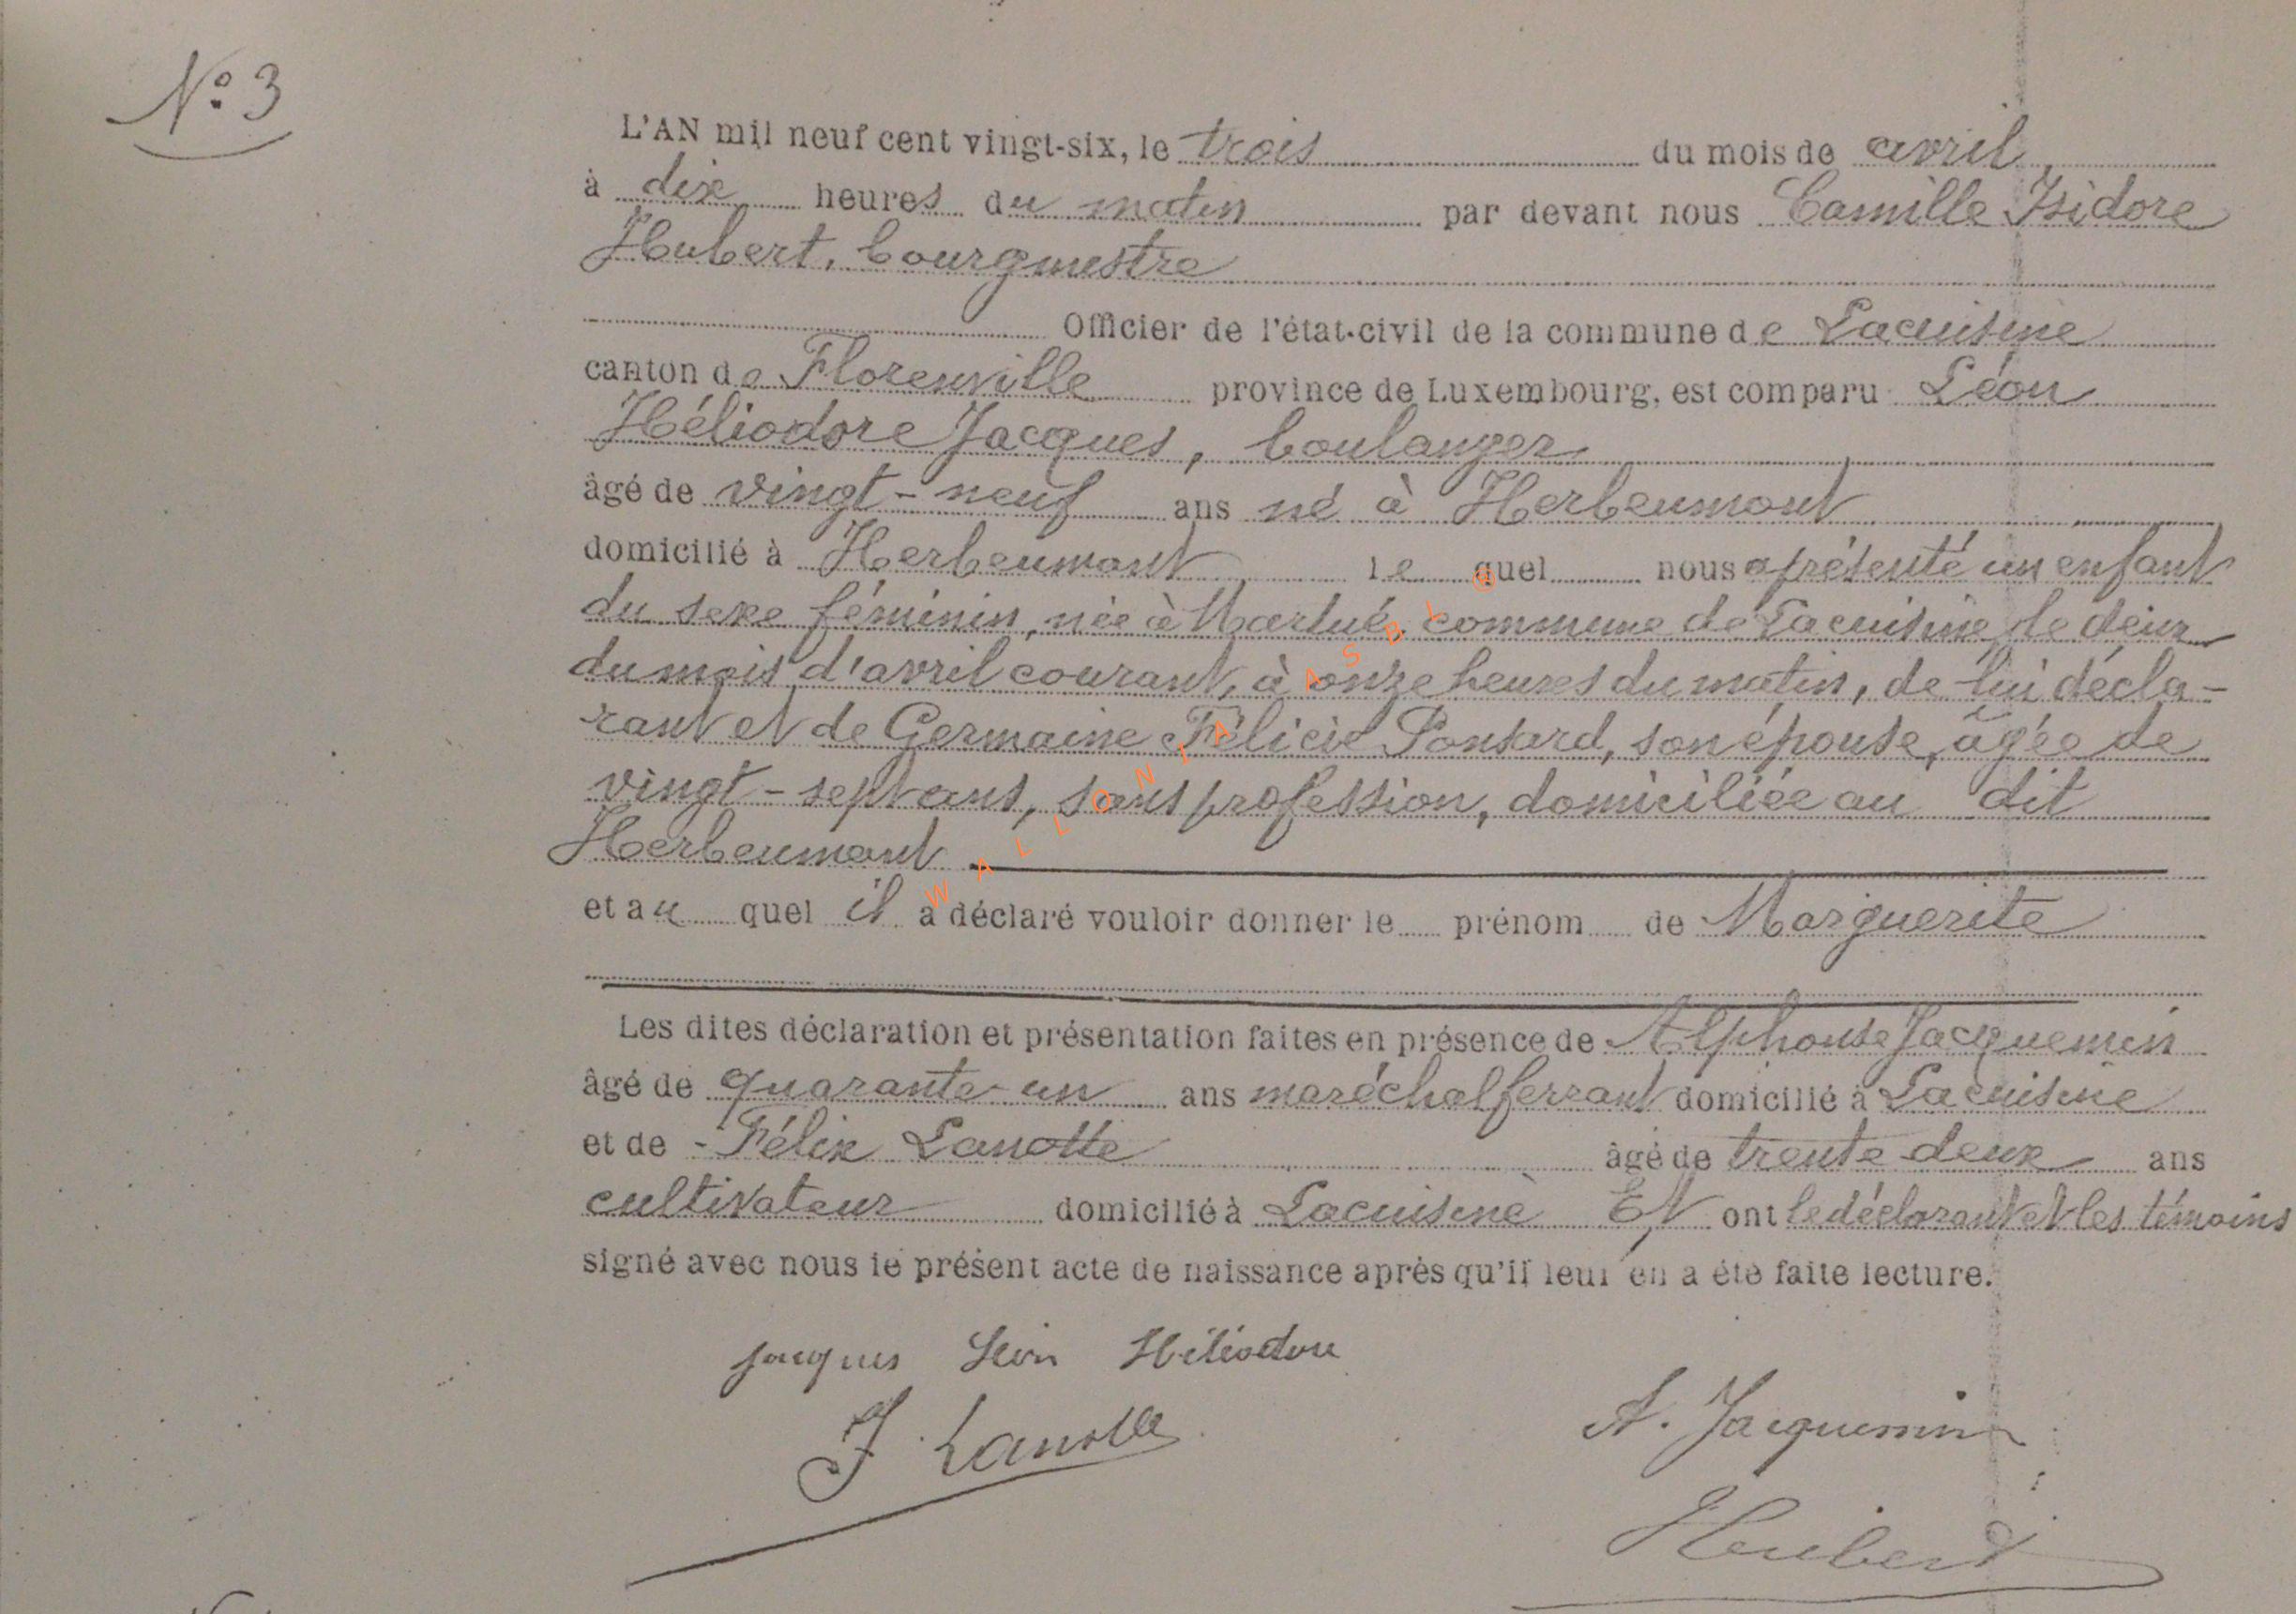 N° 3
L'AN mil neuf cent vingt-six, le trois du mois de avril,
à dix heures du matin par devant nous Camille Isidore
Hubert, bourgmestre
Officier de l'état-civil de la commune de Lacuisine
canton de Florenville province de Luxembourg, est comparu Léon
Héliodore Jacques, boulanger
âgé de vingt-neuf ans né à Herbeumont
domicilié à Herbeumont lequel nous a présenté un enfant
du sexe féminin, née à Martué, commune de Lacuisine, le deux
du mois d'avril courant, à onze heures du matin, de lui décla-
rant et de Germaine Félicie Ponsard, son épouse, âgée de
vingt-sept ans, sans profession, domiciliée au dit
Herbeumont
et au quel il a déclaré vouloir donner le prénom de Marguerite
Les dites déclaration et présentation faites en présence de Alphonse Jacquemin
âgé de quarante-un ans maréchal ferrant domicilié à Lacuisine
et de Félix Lanotte âgé de trente-deux ans
cultivateur domicilié à Lacuisine Et ont le déclarant et les témoins
signé avec nous le présent acte de naissance après qu'il leur en a été faite lecture.
Jacques Léon Héliodore
F. Lanotte
A. Jacquemin
Hubert
WALLONIA ASBL ©